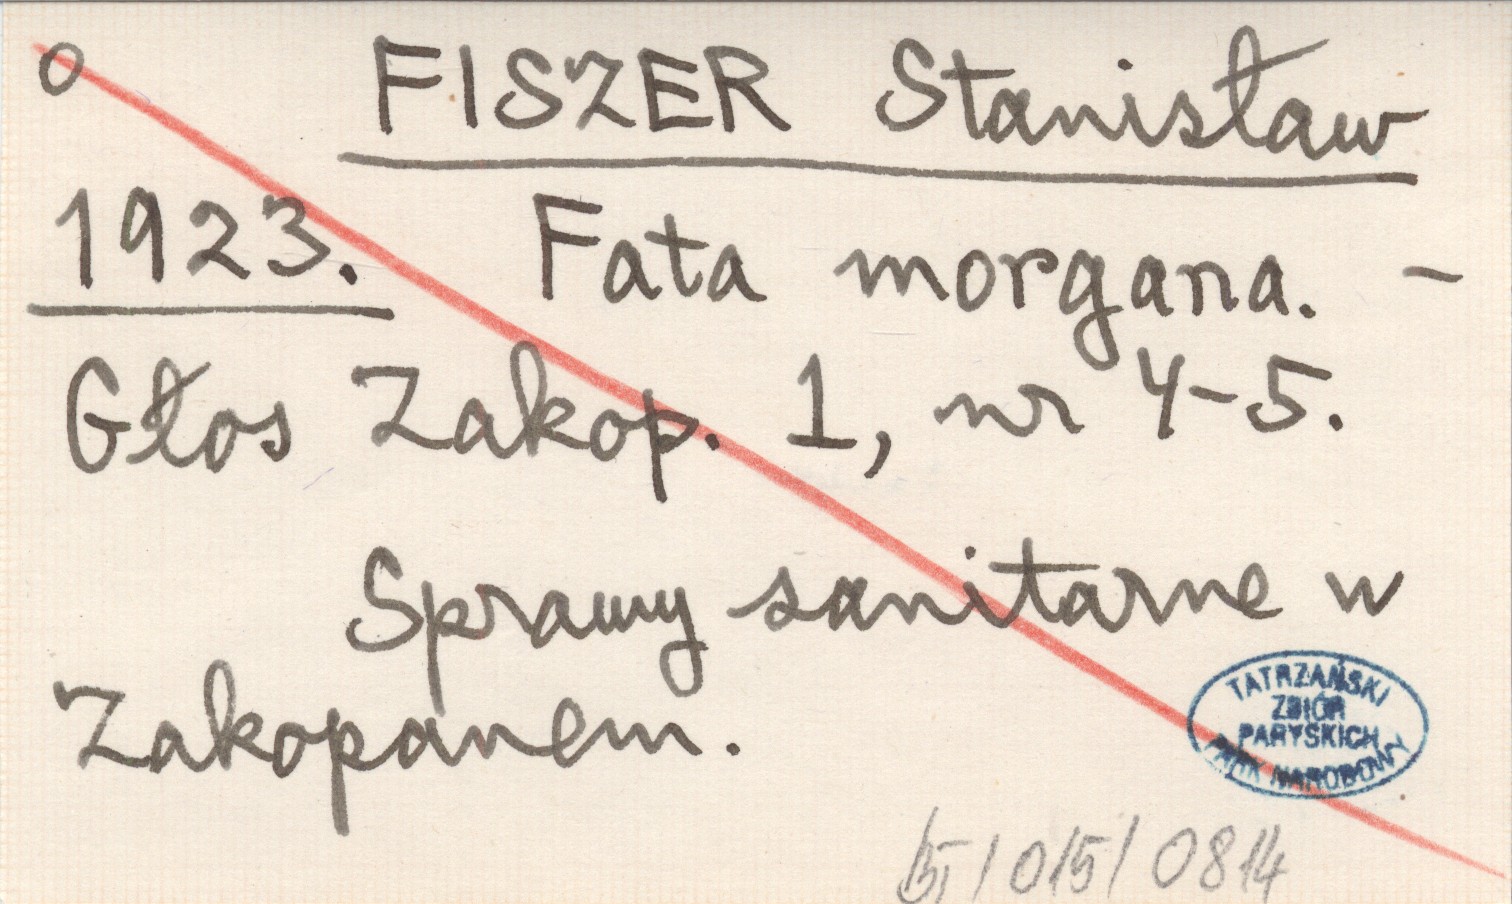 o FISZER Stanisław
1923. Fata morgana. -
Głos Zakop. 1, nr 4-5.
Sprawy sanitarne w
Zakopanem.
TATRZAŃSKI
ZBIÓR
PARYSKICH
PARK NARODOWY
/015/0814